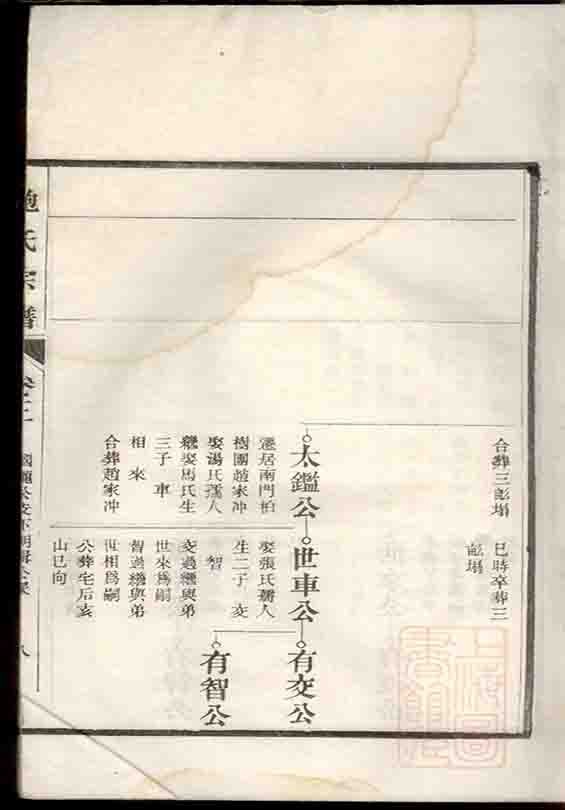 合葬三彭塌
巳時卒葬三
彭塌
太鑑公
遷居南門柏
樹團趙家冲
娶湯氏孺人
繼娶馬氏生
三子 車
相 來
合葬趙家冲
世車公
娶張氏孺人
生二子 交
智
交過繼與弟
世來爲嗣
智過繼與弟
世相爲嗣
公葬宅后亥
山巳向
有交公
有智公
鮑氏宗譜
卷三
八
上海圖書館藏